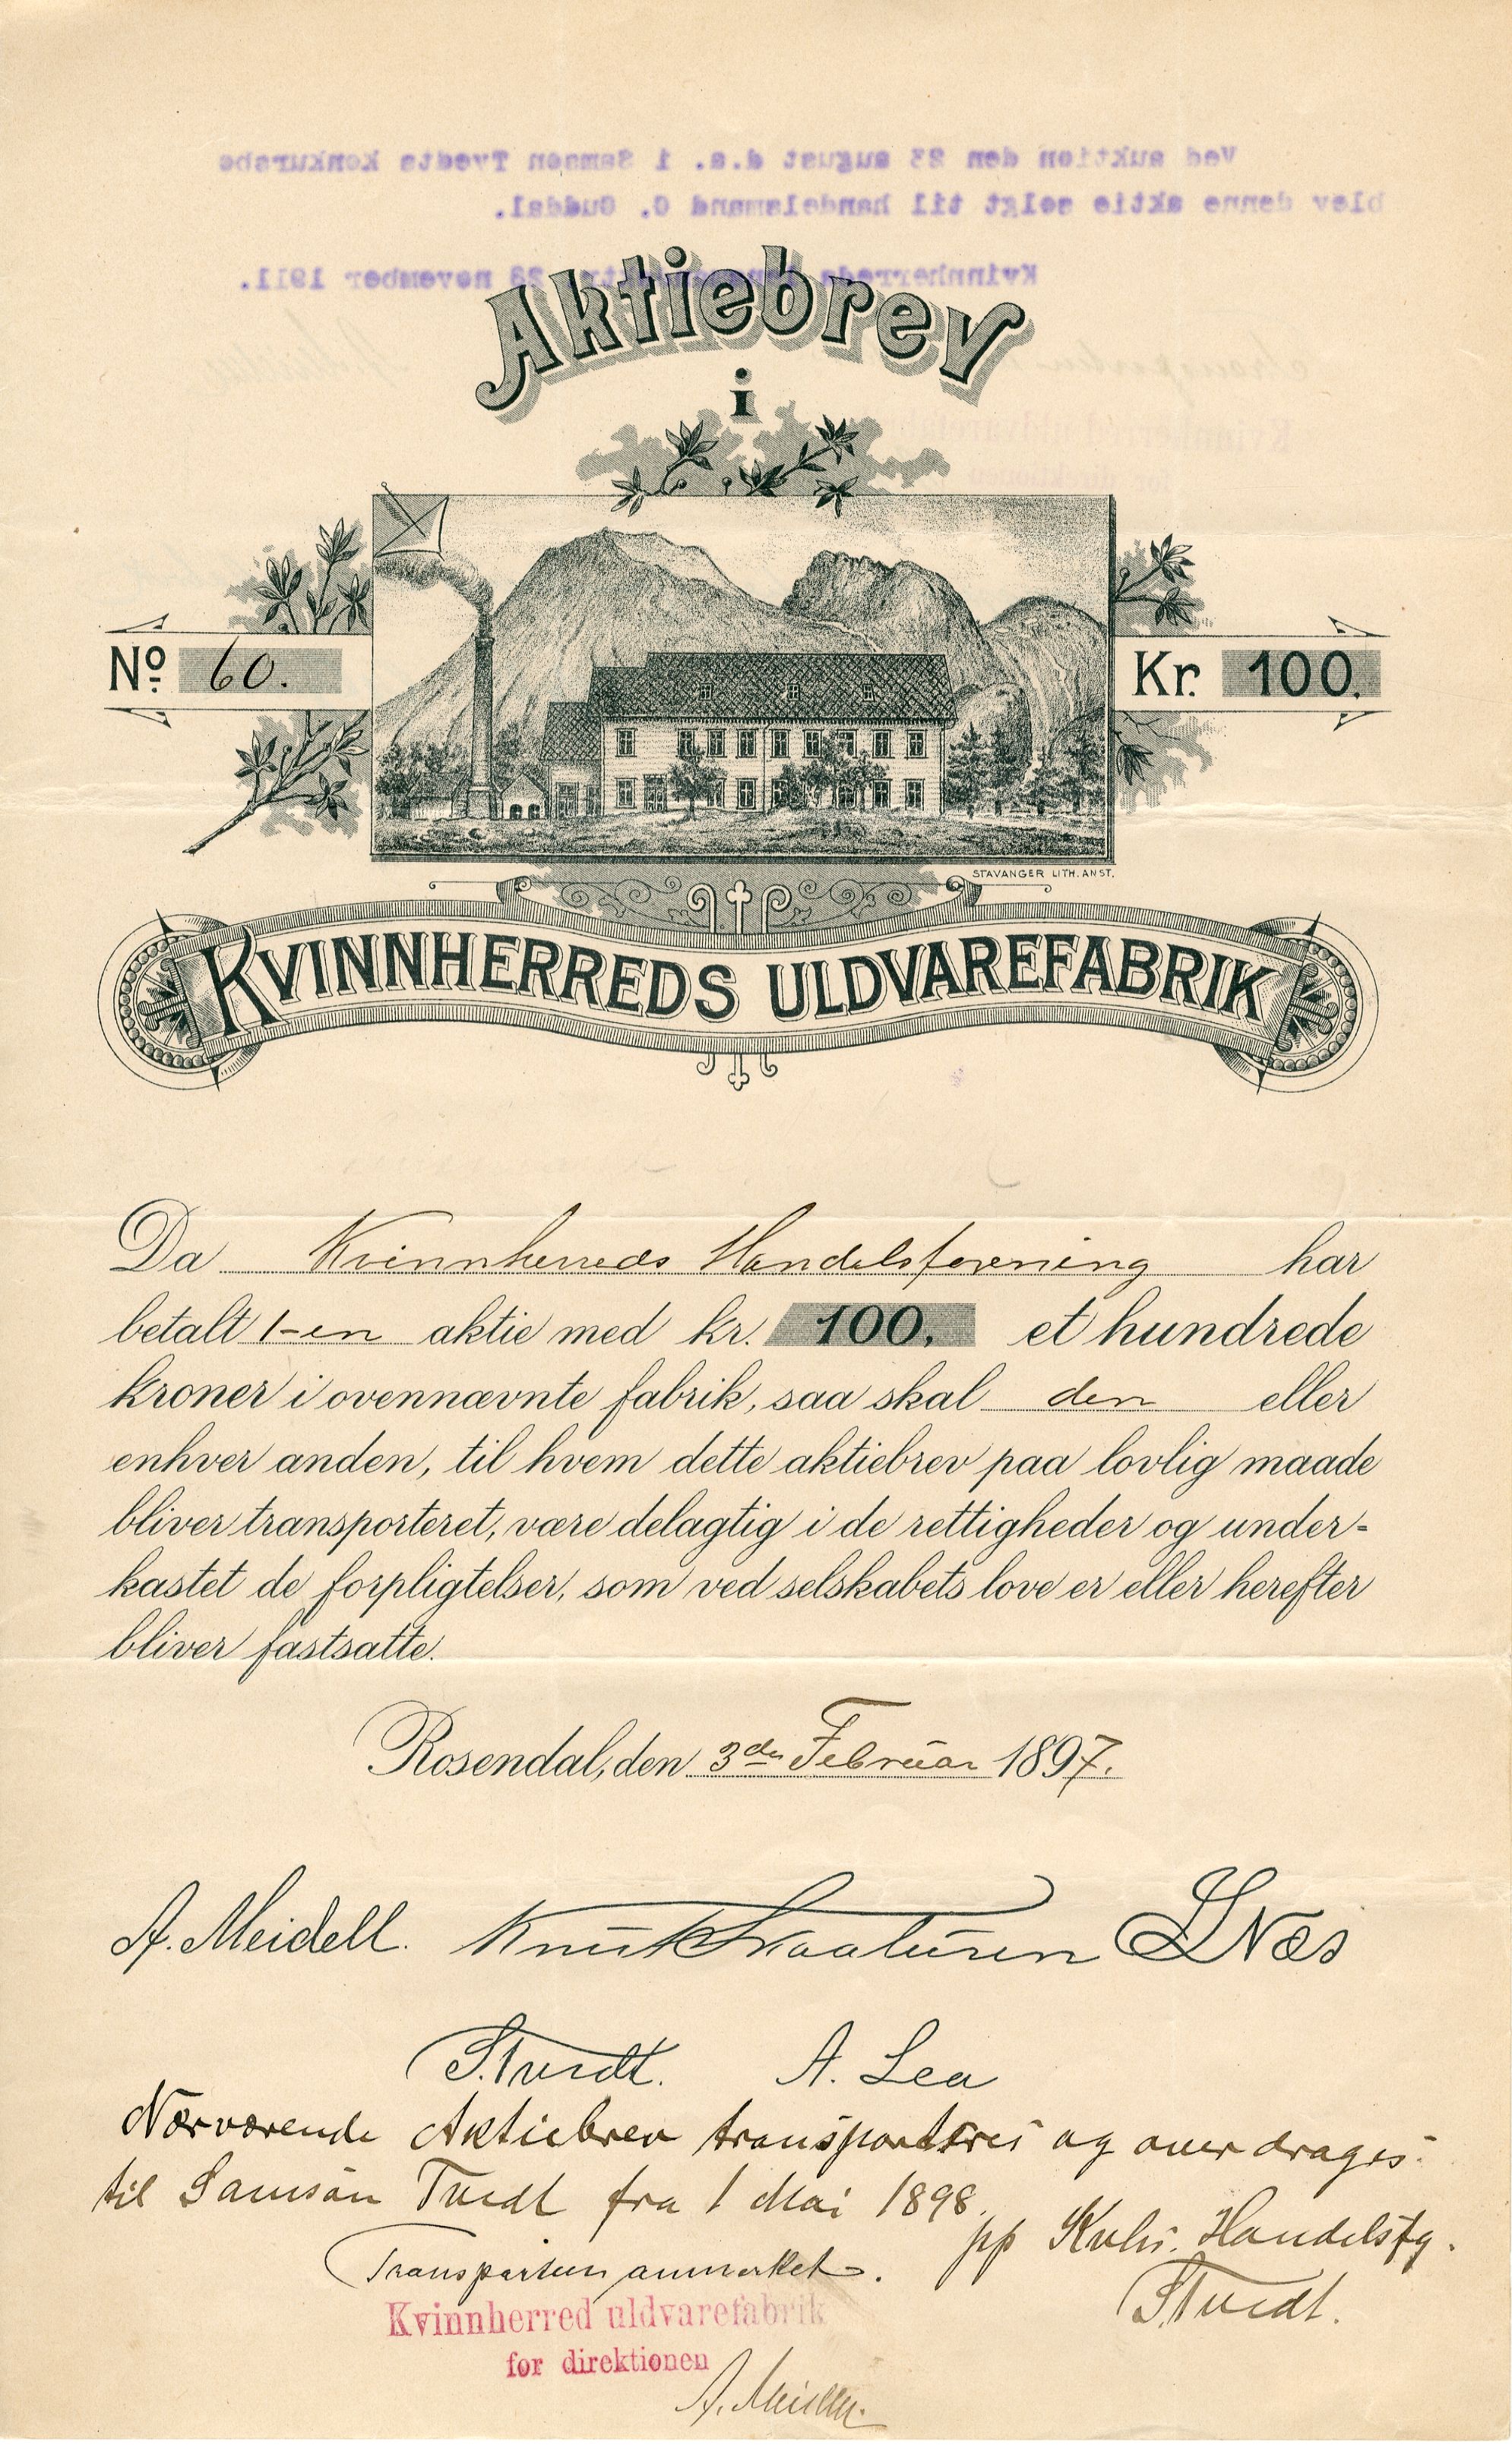 Ved auktion den 23 august d.a. i Samson Tvedts konkursbo
blev denne aktie solgt til handelsmand O. Guddal.
Kvinnherreds 28 november 1911.
Aktiebrev
i
No. 60.
Kr. 100.
STAVANGER LITH. ANST.
KVINNHERREDS ULDVAREFABRIK
Da Kvinnherreds Handelsforening har
betalt 1-en aktie med kr. 100, et hundrede
kroner i ovennævnte fabrik, saa skal den eller
enhver anden, til hvem dette aktiebrev paa lovlig maade
bliver transporteret, være delagtig i de rettigheder og under-
kastet de forpligtelser, som ved selskabets love er eller herefter
bliver fastsatte.
Rosendal, den 3die Februar 1897.
A. Meidell. Knut Skaaluren L Næs
S. Tvedt. A. Lea
Nærværende Aktiebrev transporteres og overdrages
til Samson Tvedt fra 1 Mai 1898.
pp Kvhr. Handelsfg.
Transporten anmerket.
S Tvedt.
Kvinnherred uldvarefabrik
for direktionen
A. Meidell.